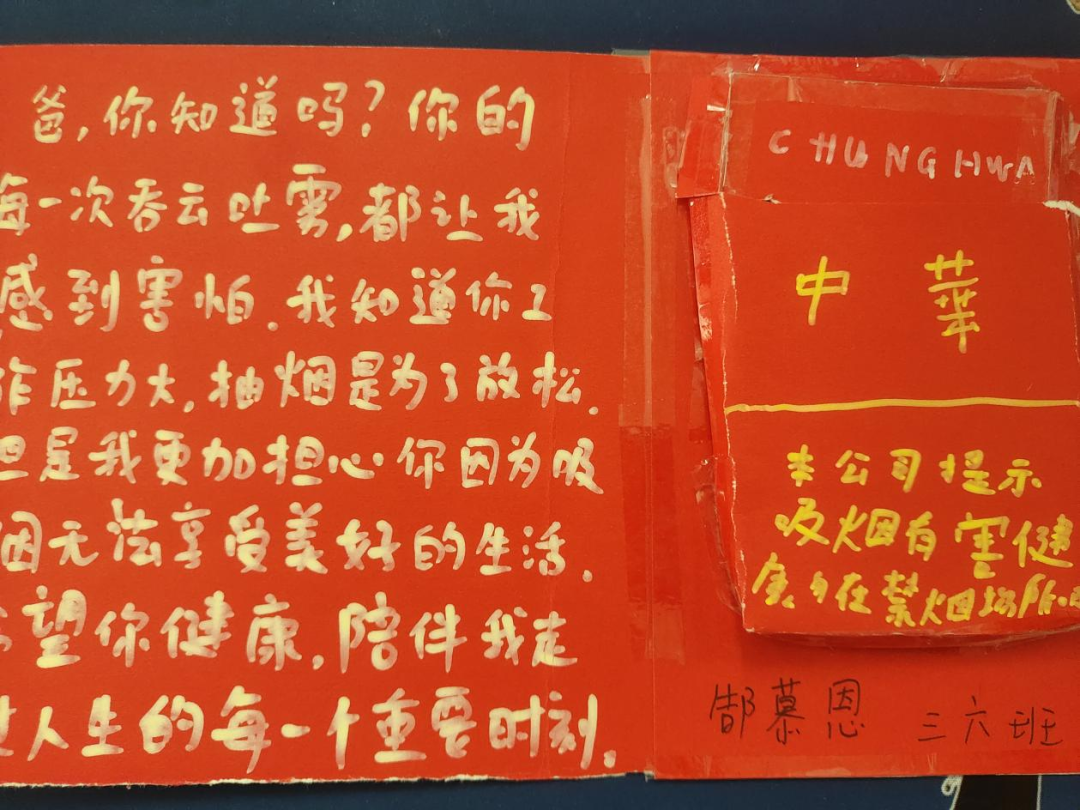 爸,你知道吗?你的
每一次吞云吐雾,都让我
感到害怕.我知道你工
作压力大,抽烟是为了放松.
但是我更加担心你因为吸
烟无法享受美好的生活.
希望你健康,陪伴我走
过人生的每一个重要时刻.
CHUNGHWA
中 華
本公司提示
吸烟有害健
康勿在禁烟场所
郜慕恩 三六班